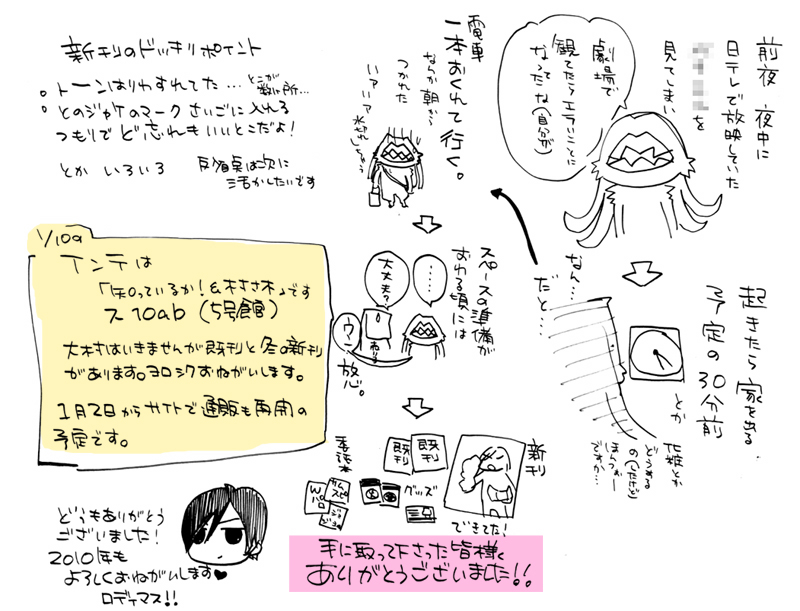 前夜 夜中に
日テレで放映していた
を
見てしまい
劇場で
観てたらエラいことに
なってたな(自分が)
起きたら家を出る
予定の30分前
とか
なん…
だと…
化粧とか
電車
一本おくれて行く。
なんか朝から
つかれた
スペースの準備が
おわる頃には
……
大丈夫?
放心。
新刊
できてた!
既刊
既刊
グッズ
委託本
Wパロ
サムスピ
手に取って下さった皆様
ありがとうございました!!
新刊のドッキリポイント
トーンはりわすれてた…
とこが
数ヶ所…
とのジャケのマークさいごに入れる
つもりでど忘れもいいとこだよ!
とかいろいろ
反省点は次に
活かしたいです
1/10a
インテは
「知っているか!&木ささ木」です
ス10ab(5号館)
大木さはいきませんが既刊と冬の新刊
があります。ヨロシクおねがいします。
1月2日からサイトで通販も再開の
予定です。
どうもありがとう
ございました!
2010年も
よろしくおねがいします♥
ロディマス!!